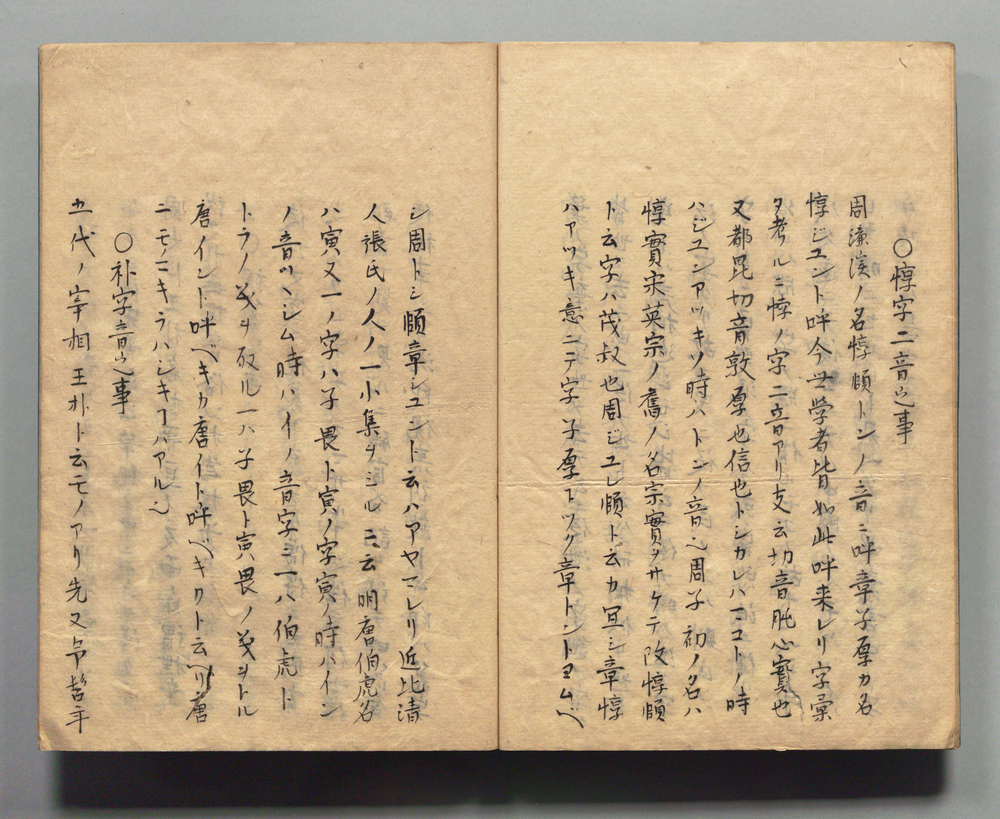 ○惇字二音之事
周濂溪ノ名惇頤トンノ音ニ呼章子厚カ名
惇ジユント呼今世学者皆如此呼来レリ字彙
ヲ考ルニ惇ノ字二音アリ支云切音肫心實也
又都昆切音敦厚也信也トシカレハマコトノ時
ハジユンアツキノ時ハトンノ音也周子初ノ名ハ
惇實宋英宗ノ舊ノ名宗實ヲサケテ改惇頤
ト云字ハ茂叔也周ジユン頤ト云カ宜シ章惇
ハアツキ意ニテ字子厚トツク章トントヨムヘ
シ周トン頤章シユント云ハアヤマレリ近比清
人張氏ノ人ノ一小集ヲミルニ云明唐伯虎名
ハ寅又一ノ字ハ子畏ト寅ノ字寅ノ時ハイン
ノ音ツヽシム時ハイノ音字ニ一ハ伯虎ト
トラノ義ヲ取ル一ハ子畏ト寅畏ノ義ヲトル
唐イント呼ベキカ唐イト呼ベキカト云ヘリ唐
ニモノコキラハシキヿハアル也
○朴字音之事
五代ノ宰相王朴ト云モノアリ先父命哲年